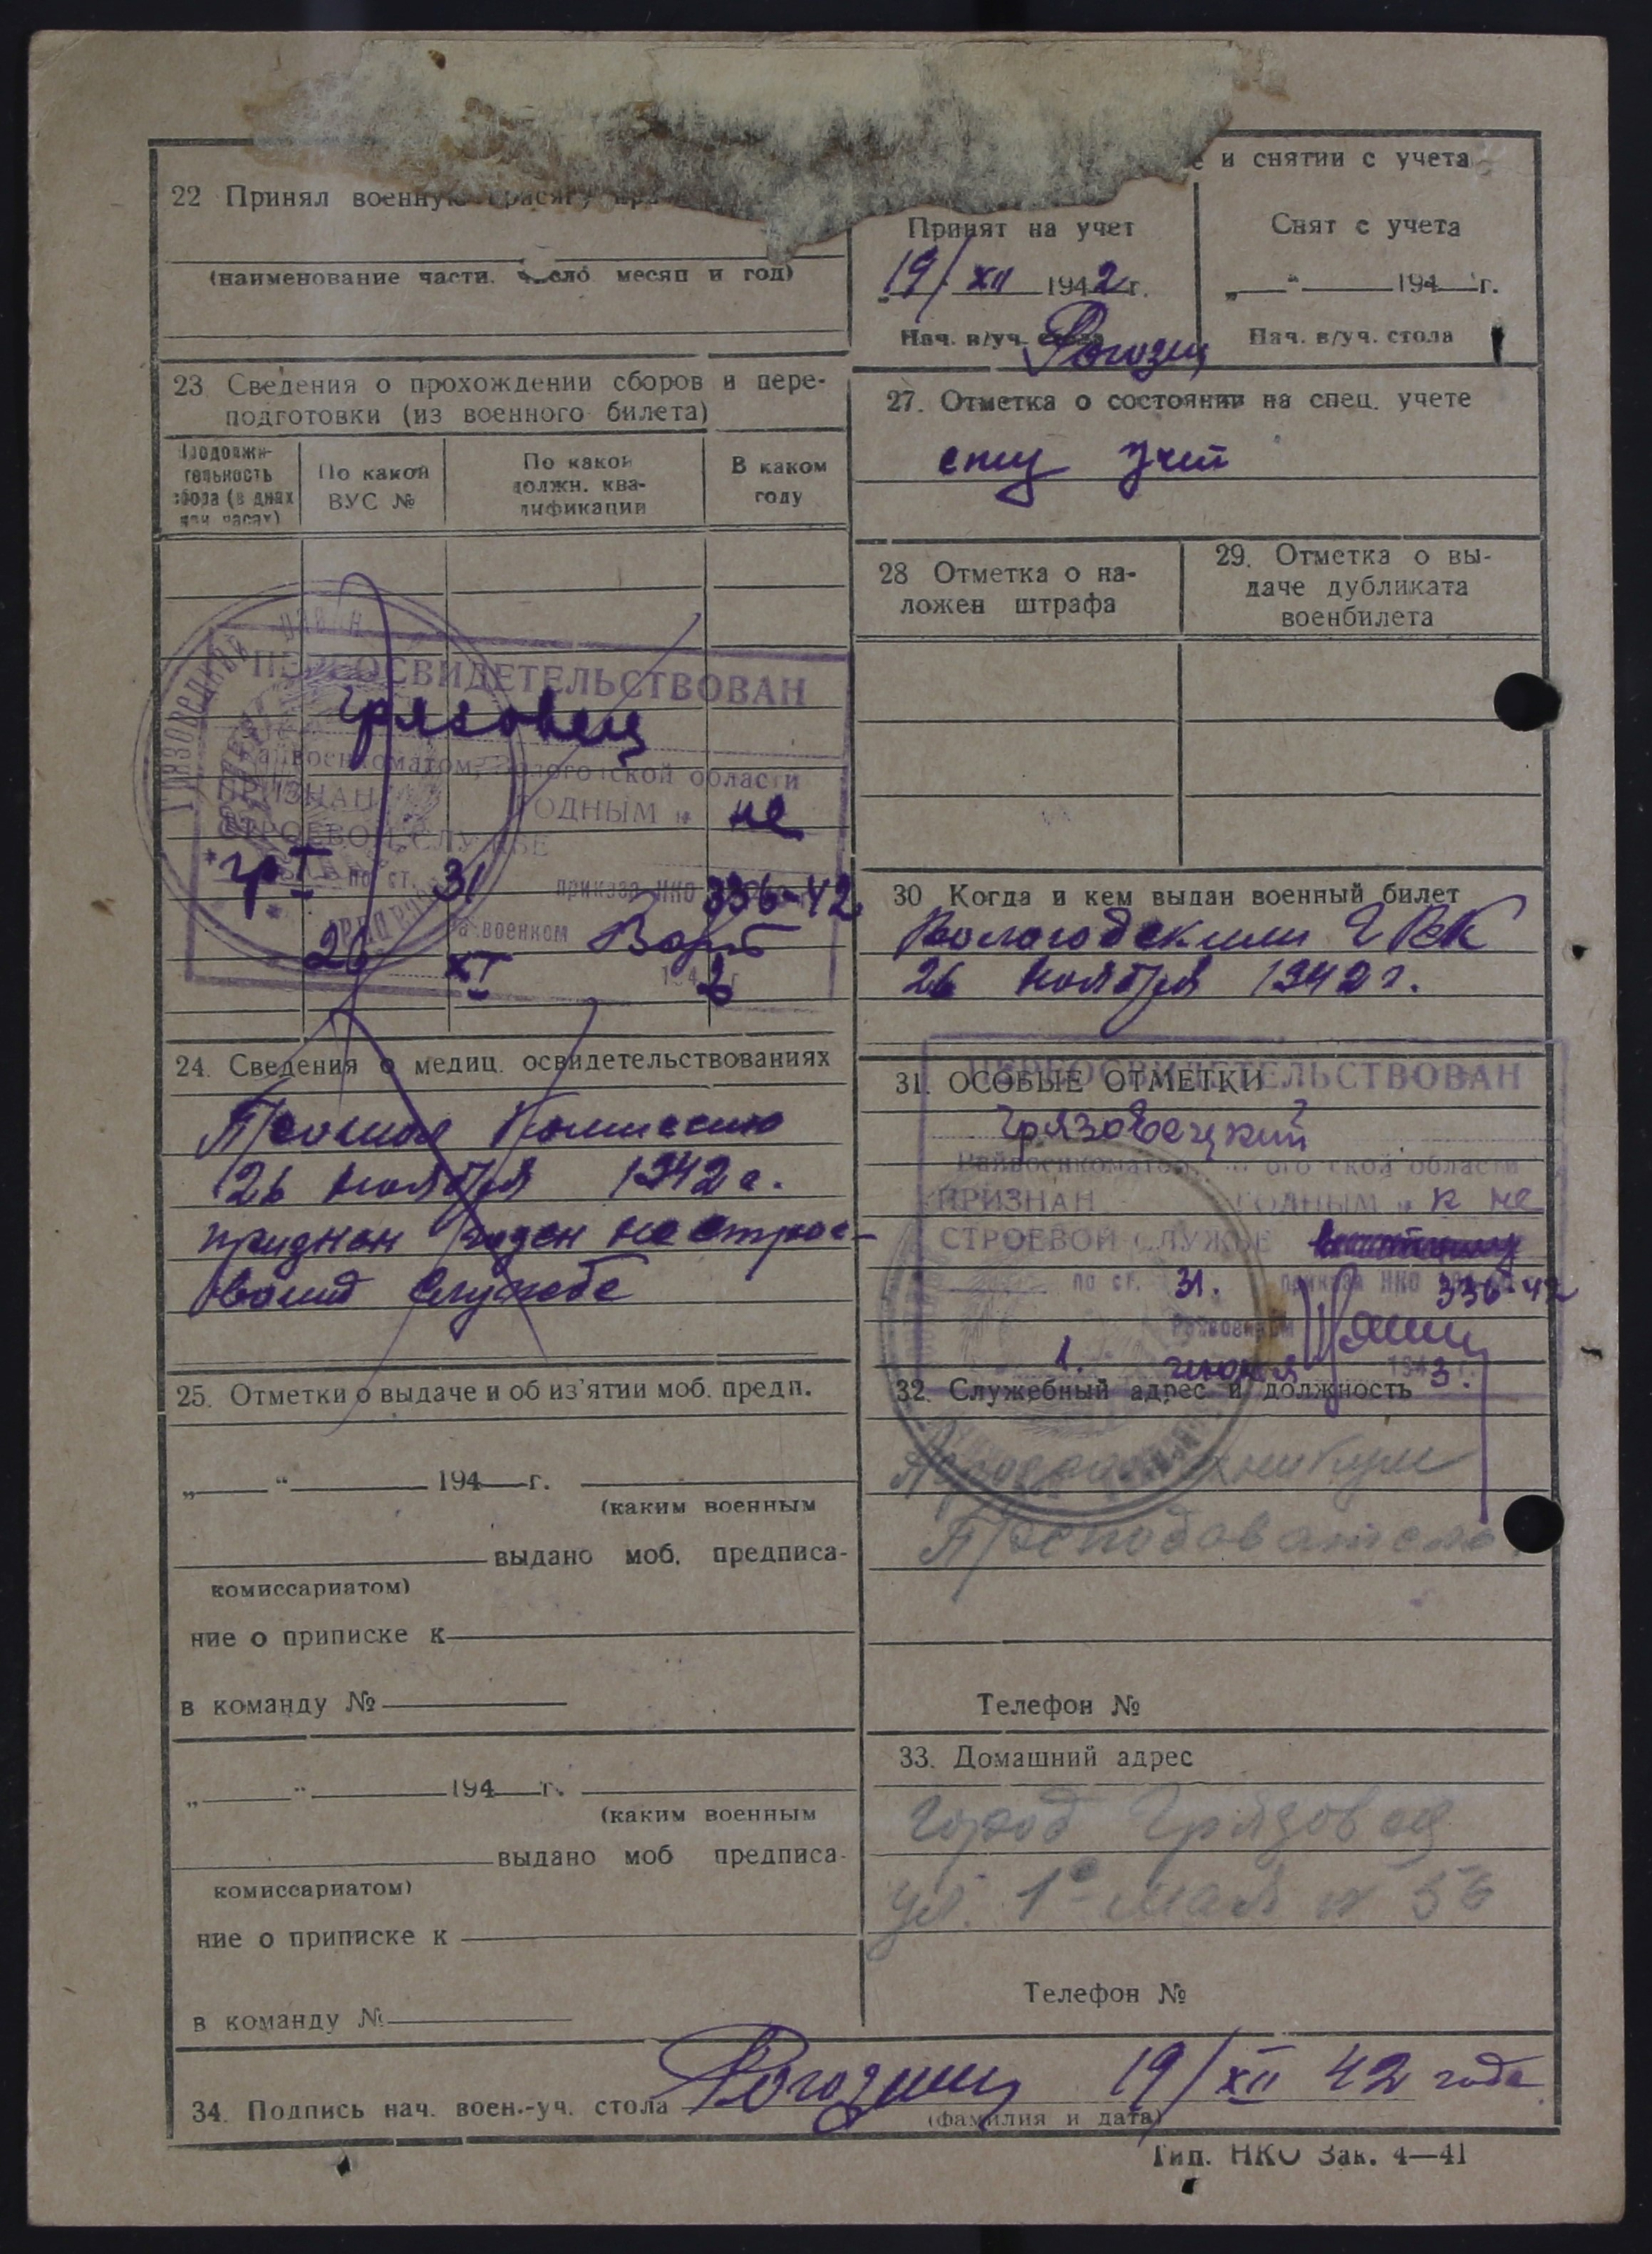 22 Принял военную присягу при
(наименование части. число месяц и год)
23 Сведения о прохождении сборов и пере-
подготовки (из военного билета)
Продолжи-
тельность
сбора (в днях
или часах)
По какой
ВУС №
По какой
должн. ква-
лификации
В каком
году
ПЕРЕОСВИДЕТЕЛЬСТВОВАН
Грязовец
райвоенкоматом, Вологодской области
ПРИЗНАН ГОДНЫМ к не
СТРОЕВОЙ СЛУЖБЕ
гр I по ст. 31 приказа НКО 336-42
Райвоенком
26 XI 1942 г
24. Сведения о медиц. освидетельствованиях
26 ноября 1942 г.
признан годен не строе-
вой службе
25. Отметки о выдаче и об из'ятии моб. предп.
„ “ 194 г.
(каким военным
выдано моб. предписа-
комиссариатом)
ние о приписке к
в команду №
„ “ 194 г.
(каким военным
выдано моб предписа-
комиссариатом)
ние о приписке к
в команду №
е и снятии с учета
Принят на учет
19/XII 1942 г.
Нач. в/уч. стола
Рогозин
Снят с учета
„ “ 194 г.
Нач. в/уч. стола
27. Отметка о состоянии на спец. учете
спец учет
28 Отметка о на-
ложен штрафа
29. Отметка о вы-
даче дубликата
военбилета
30 Когда и кем выдан военный билет
Вологодским ГВК
26 ноября 1942 г.
31. ОСОБЫЕ ОТМЕТКИ
ПЕРЕОСВИДЕТЕЛЬСТВОВАН
Грязовецкий
Райвоенкоматом, Вологодской области
ПРИЗНАН ГОДНЫМ к не
СТРОЕВОЙ СЛУЖБЕ
по ст. 31. приказа НКО 336-42
Райвоенком
1. июня 1943 г.
32. Служебный адрес и должность
Преподаватель
Телефон №
33. Домашний адрес
город Грязовец
ул. 1е мая № 56
Телефон №
34. Подпись нач. воен.-уч. стола Рогозин 19/XII 42 года
(фамилия и дата)
Тип. НКО Зак. 4—41